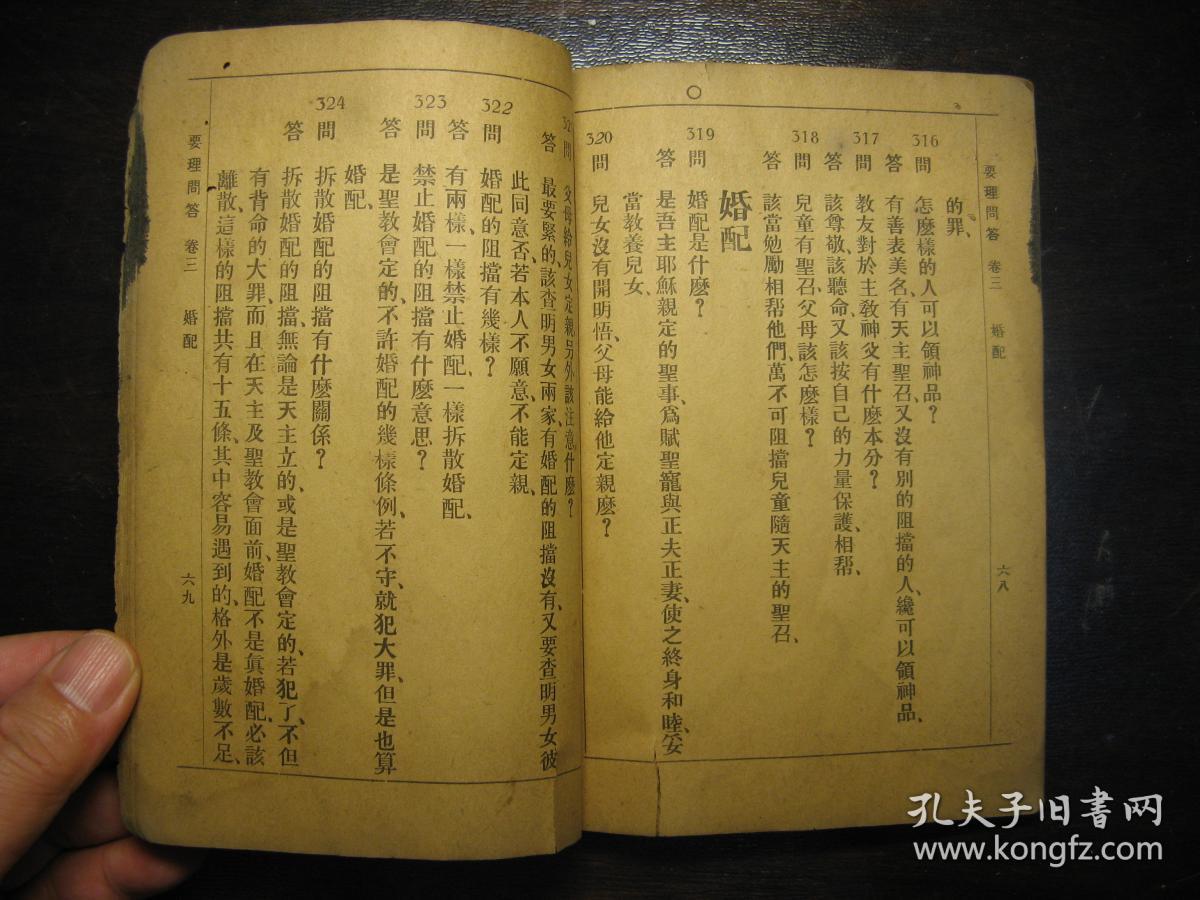 要理問答 卷三 婚配 六八
的罪、
316 問 怎麼樣的人可以領神品？
答 有善表美名、有天主聖召、又沒有別的阻擋的人、纔可以領神品、
317 問 教友對於主教神父有什麼本分？
答 該尊敬、該聽命、又該按自己的力量保護、相帮、
318 問 兒童有聖召、父母該怎麼樣？
答 該當勉勵相帮他們、萬不可阻擋兒童隨天主的聖召、
婚配
319 問 婚配是什麼？
答 是吾主耶穌親定的聖事、爲賦聖寵與正夫正妻、使之終身和睦、妥
當教養兒女、
320 問 兒女沒有開明悟、父母能給他定親麼？
問 父母給兒女定親、另外該注意什麼？
答 最要緊的、該查明男女兩家、有婚配的阻擋沒有、又要查明男女彼
此同意否、若本人不願意、不能定親、
322 問 婚配的阻擋有幾樣？
答 有兩樣、一樣禁止婚配、一樣拆散婚配、
323 問 禁止婚配的阻擋有什麼意思？
答 是聖教會定的、不許婚配的幾樣條例、若不守、就犯大罪、但是也算
婚配、
324 問 拆散婚配的阻擋有什麼關係？
答 拆散婚配的阻擋、無論是天主立的、或是聖教會定的、若犯了、不但
有背命的大罪、而且在天主及聖教會面前、婚配不是眞婚配、必該
離散、這樣的阻擋共有十五條、其中容易遇到的、格外是歲數不足、
要理問答 卷三 婚配 六九
孔夫子旧书网
www.kongfz.com